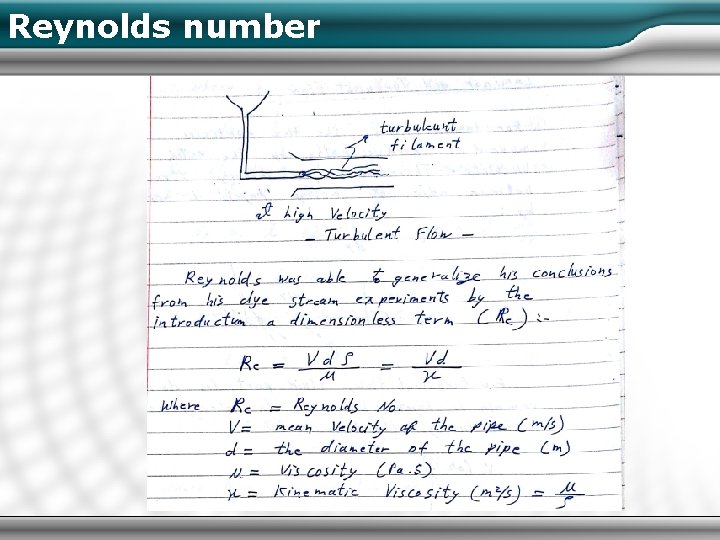 Reynolds number
turbulunt
filament
at high Velocity
- Turbulent Flow -
Reynolds was able to generalize his conclusions
from his dye stream experiments by the
introduction a dimensionless term (Re) :-
Re = Vdρ/μ = Vd/ν
Where Re = Reynolds No.
V = mean Velocity of the pipe (m/s)
d = the diameter of the pipe (m)
μ = Viscosity (Pa.s)
ν = Kinematic Viscosity (m²/s) = μ/ρ